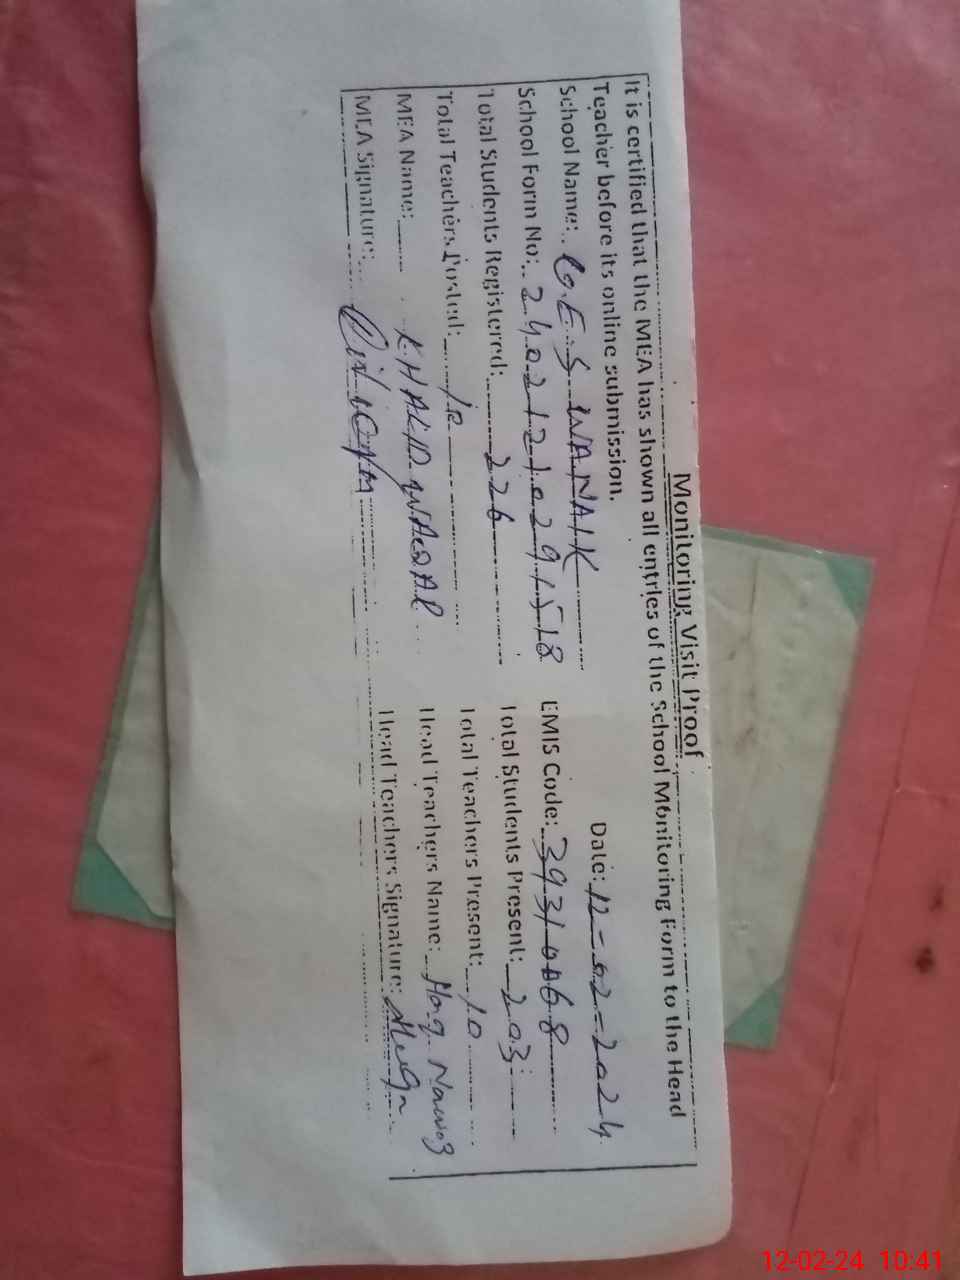 Monitoring Visit Proof
It is certified that the MEA has shown all entries of the School Monitoring Form to the Head
Teacher before its online submission. Date: 12-02-2024
School Name: G.E.S WANAIK
School Form No: 2402121029 EMIS Code: 39310068
Total Students Registered: 226 Total Students Present: 203
Total Teachers Posted: 10 Total Teachers Present: 10
MEA Name: KHALID WAQAR Head Teachers Name: Haq Nawaz
MEA Signature: Head Teachers Signature:
12-02-24 10:41